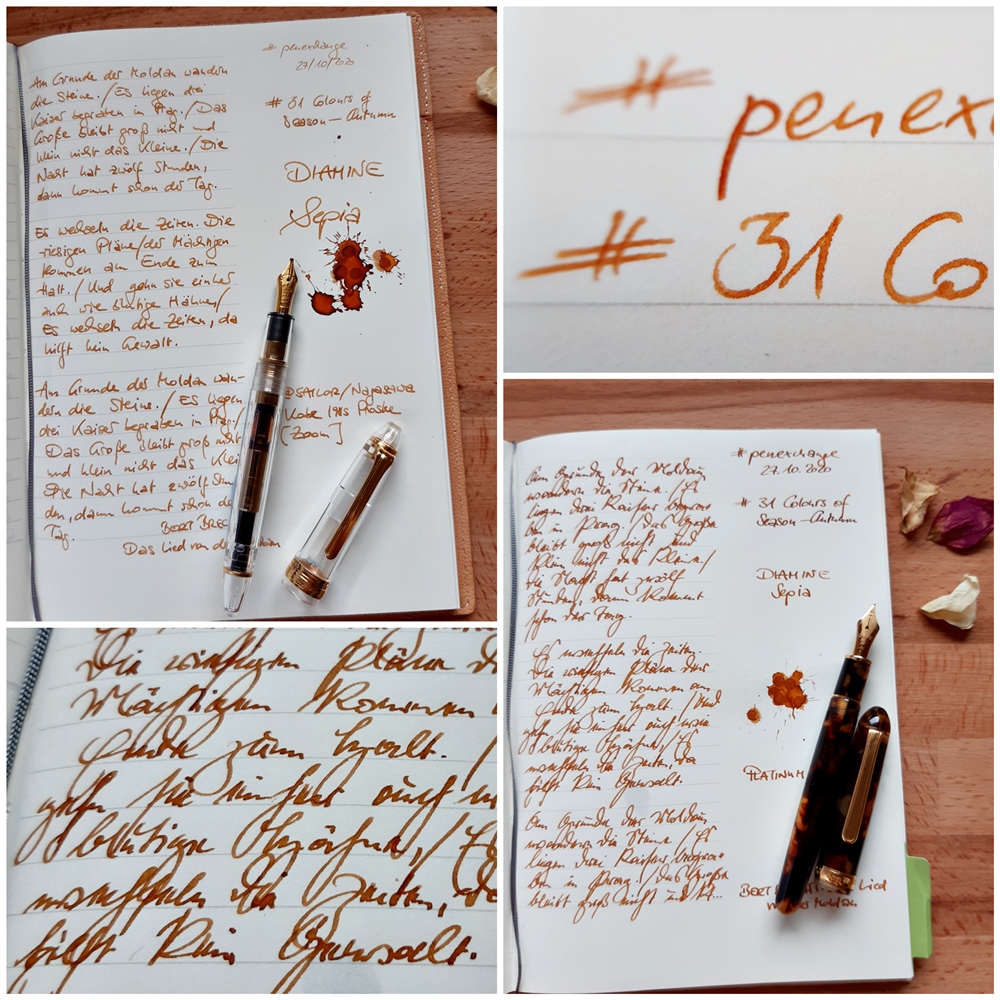 Am Grunde der Moldau wandern
die Steine./Es liegen drei
Kaiser begraben in Prag./Das
Große bleibt groß nicht und
klein nicht das Kleine./Die
Nacht hat zwölf Stunden,
dann kommt schon der Tag.
Es wechseln die Zeiten. Die
riesigen Pläne/der Mächtigen
kommen am Ende zum
Halt./Und gehn sie einher
auch wie blutige Hähne/
Es wechseln die Zeiten, da
hilft kein Gewalt.
Am Grunde der Moldau wan-
dern die Steine./Es liegen
drei Kaiser begraben in Prag./
Das Große bleibt groß nicht
und klein nicht das Klei
Die Nacht hat zwölf Stun
den, dann kommt schon de
Tag.
BERT BREC
Das Lied von de
# penexchange
27/10/2020
# 31 Colours of
Season - Autumn
DIAMINE
Sepia
@SAILOR/Nagasawa
Kobe 1985 Proske
[Zoom]
# penex
# 31 Co
Die riesigen Pläne d
Mächtigen kommen am
Ende zum Halt. /
gehn sie einher auch w
blutige Hähne, / Es
wechseln die Zeiten, da
hilft kein Gewalt.
Am Grunde der Moldau
wandern die Steine./Es
liegen drei Kaiser begra-
ben in Prag./Das Große
bleibt groß nicht und
klein nicht das Kleine/
die Nacht hat zwölf
Stunden, dann kommt
schon der Tag.
Es wechseln die Zeiten.
Die riesigen Pläne der
Mächtigen kommen am
Ende zum Halt. /Und
gehn sie einher auch wie
blutige Hähne,/Es
wechseln die Zeiten, da
hilft kein Gewalt.
Am Grunde der Moldau
wandern die Steine/Es
liegen drei Kaiser begra-
ben in Prag./Das Große
bleibt groß nicht
# penexchange
27.10.2020
# 31 Colours of
Season-Autumn
DIAMINE
Sepia
PLATINUM
BERT Lied
Moldau